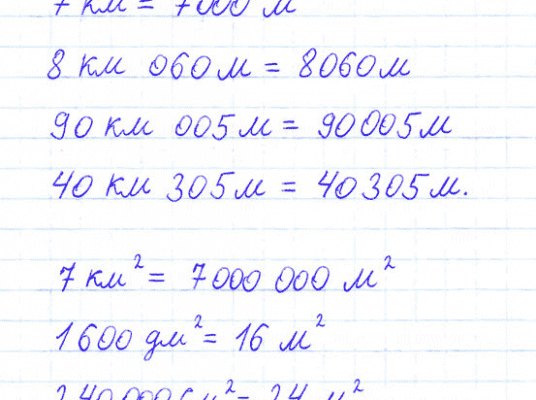 7 км = 7000 м
8 км 060 м = 8060 м
90 км 005 м = 90005 м
40 км 305 м = 40305 м.
7 км² = 7000 000 м²
1600 дм² = 16 м²
240 000 см² = 24 м²